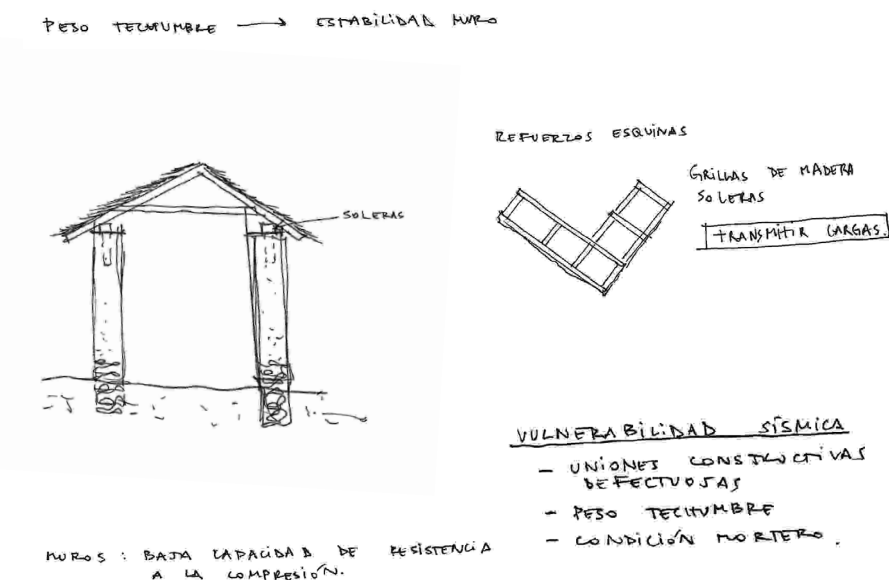 PESO TECHUMBRE → ESTABILIDAD MURO
REFUERZOS ESQUINAS
GRILLAS DE MADERA
SOLERAS
TRANSMITIR CARGAS.
SOLERAS
VULNERABILIDAD SÍSMICA
- UNIONES CONSTRUCTIVAS
DEFECTUOSAS
- PESO TECHUMBRE
- CONDICIÓN MORTERO.
MUROS : BAJA CAPACIDAD DE RESISTENCIA
A LA COMPRESIÓN.